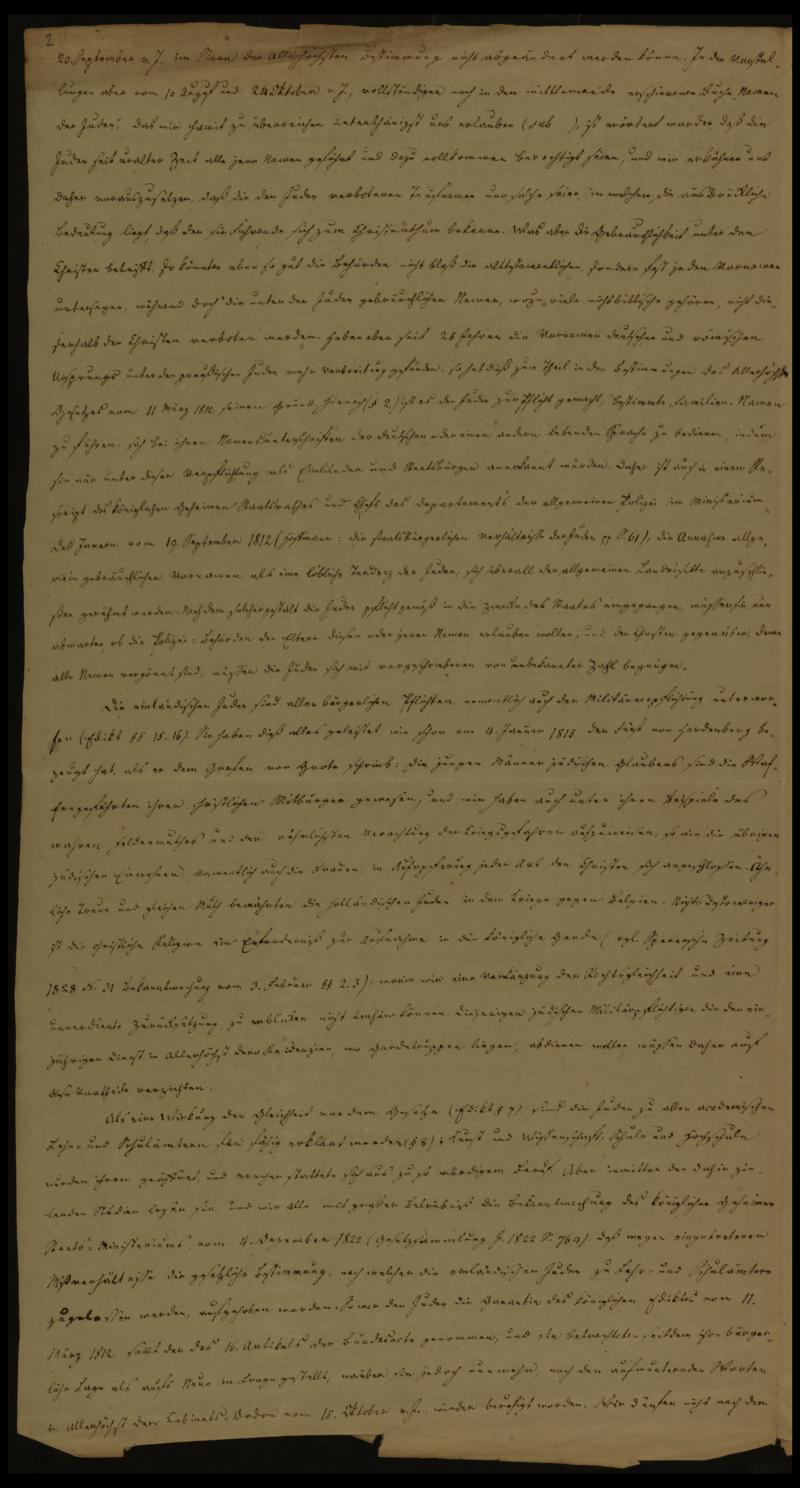 2
20. September v. J. im Sinne der allerhöchsten Bestimmung nicht abgeändert werden können. In den Vorstel-
lungen aber vom 10 August und 24 Oktober v. J., vollständiger noch in dem mittlerweile erschienenen Buche "Namen
der Juden", das wir hiermit zu überreichen unterthänigst uns erlauben (sub ), ist erörtert worden daß die
Juden seit uralter Zeit alle jene Namen geführt und dazu vollkommen berechtigt seien, und wir erkühnen uns
daher vorauszusetzen, daß die den Juden verbotenen Taufnamen nur solche seien, in welchen die ausdrückliche
Bedeutung liegt, daß der sie Führende sich zum Christenthum bekenne. Was aber die Gebräuchlichkeit unter den
Christen betrifft, so könnten eben so gut die Behörden nicht bloß die alttestamentlichen, sondern fast jeden Vornamen
untersagen, während doch die unter den Juden gebräuchlichen Namen, wozu viele nichtbiblische gehören, nicht die-
serhalb den Christen verboten werden. Haben aber seit 25 Jahren die Vornamen deutschen und römischen
Ursprungs unter den preußischen Juden mehr Verbreitung gefunden, so hat dieß zum Theil in den Bestimmungen des Allerhöchsten
Gesetzes vom 11 März 1812 seinen Grund. Hiernach (§ 2) ist es den Juden zur Pflicht gemacht, bestimmte Familien-Namen
zu führen, sich bei ihren Namensunterschriften der deutschen oder einer andern lebenden Sprache zu bedienen, indem
sie nur unter dieser Verpflichtung als Einländer und Staatsbürger anerkannt würden. Daher ist auch in einem Re-
skript des königlichen Geheimen Staatsrathes und Chefs des Departements der allgemeinen Polizei im Ministerium
des Innern vom 19. September 1812 (Hoffmann: die staatsbürgerlichen Verhältnisse der Juden pp S. 61), die Annahme allge-
mein gebräuchlicher Vornamen als eine löbliche Tendenz der Juden, sich überall der allgemeinen Landessitte anzuschlie-
ßen gerühmt worden. Nachdem solchergestalt die Juden pflichtgemäß in die Zwecke des Staates eingegangen, müssen sie nun
abwarten, ob die Polizei-Behörden den Eltern diesen oder jenen Namen erlauben wollen, und den Christen gegenüber, denen
alle Namen vergönnt sind, müssen die Juden sich mit vorgeschriebenen von unbekannter Zahl begnügen.
Die einländischen Juden sind allen bürgerlichen Pflichten, namentlich auch der Militärverpflichtung unterwor-
fen (Edikt §§ 15. 16). Sie haben dieß alles geleistet wie schon am 4. Januar 1815 der Fürst von Hardenberg be-
zeugt hat, als er dem Grafen von Grote schrieb: "die jungen Männer jüdischen Glaubens sind die Waf-
fengefährten ihrer christlichen Mitbürger gewesen, und wir haben auch unter ihnen Beispiele des
wahren Heldenmuthes und der rühmlichsten Verachtung der Kriegsgefahren aufzuweisen, so wie die übrigen
jüdischen Einwohner, namentlich auch die Frauen, in Aufopferung jeder Art den Christen sich angeschlossen. Ähn-
liche Treue und gleichen Muth bewährten die holländischen Juden in dem Kriege gegen Belgien. Nichts desto weniger
ist die christliche Religion ein Erforderniß zur Aufnahme in die königliche Garde (vgl. Spenersche Zeitung
1828 No 31 Bekanntmachung vom 3. Februar §§ 2. 3), worin wir eine Verkürzung der Rechtsgleichheit und eine
unverdiente Zurücksetzung zu erblicken nicht umhin können. Diejenigen jüdischen Militärpflichtigen, die den ein-
jährigen Dienst in Allerhöchst Dero Residenzien, wo Gardetruppen liegen, abdienen wollen, müssen daher auf
diese Vortheile verzichten.
Als eine Wirkung der Gleichheit vor dem Gesetze (Edikt § 7) sind die Juden zu allen academischen
Lehr- und Schulämtern für fähig erklärt worden (§ 8); Kunst und Wissenschaft, Schule und Hochschule
wurden ihnen geöffnet, und mancher stattete sich aus zu so würdigem Beruf. Aber inmitten der dahin zie-
lenden Studien lasen sie und wir alle mit großer Betrübniß die Bekanntmachung des königlichen Geheimen
Staats-Ministeriums vom 4. Dezember 1822 (Gesetzsammlung J. 1822 S. 764), daß wegen eingetretener
Mißverhältnisse die gesetzliche Bestimmung, nach welcher die einländischen Juden zu Lehr- und Schulämtern
zugelassen werden, aufgehoben worden. So war den Juden die Garantie des königlichen Ediktes vom 11.
März 1812 sammt der des 16. Artikels der Bundesacte genommen, und sie betrachteten seitdem ihre bürger-
liche Lage als aufs Neue in Frage gestellt, worüber sie jedoch nunmehr, nach den aufmunternden Worten
in Allerhöchst Dero Kabinets-Ordre vom 15. Oktober v. J., wieder beruhigt worden. Wir dürfen nicht nach dem